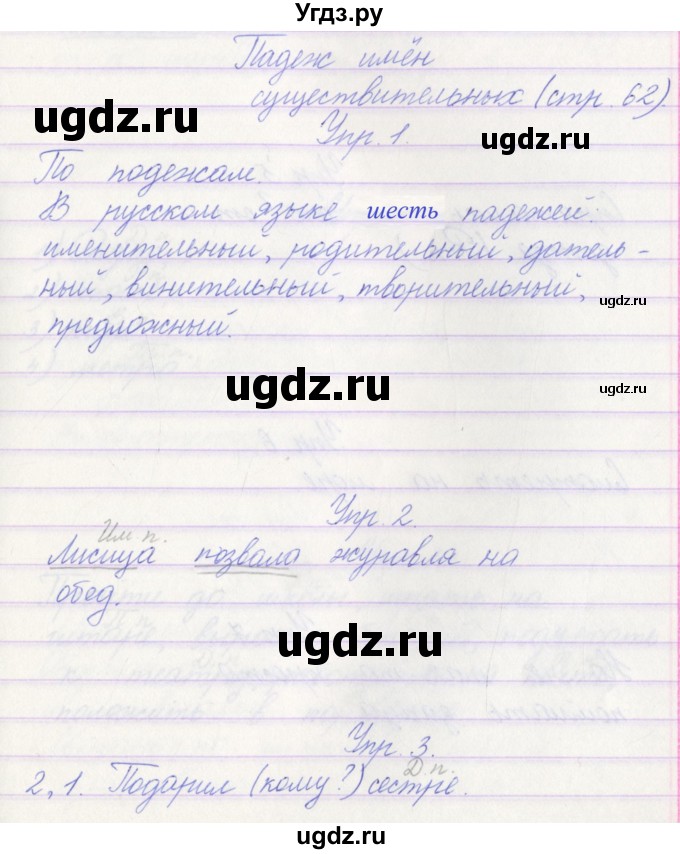 Угдз.ру
Падеж имён
существительных (стр. 62).
ugdz.ru
ugdz.ru
Упр. 1.
По подежам.
В русском языке шесть падежей:
именительный, родительный, датель-
ный, винительный, творительный,
ugdz.ru
предложный.
ugdz.ru
ugdz.ru
Упр. 2.
Им. п.
Лисица позвала журавля на
обед.
ugdz.ru
Упр. 3.
Д. п.
2, 1. Подарил (кому?) сестре.
ugdz.ru